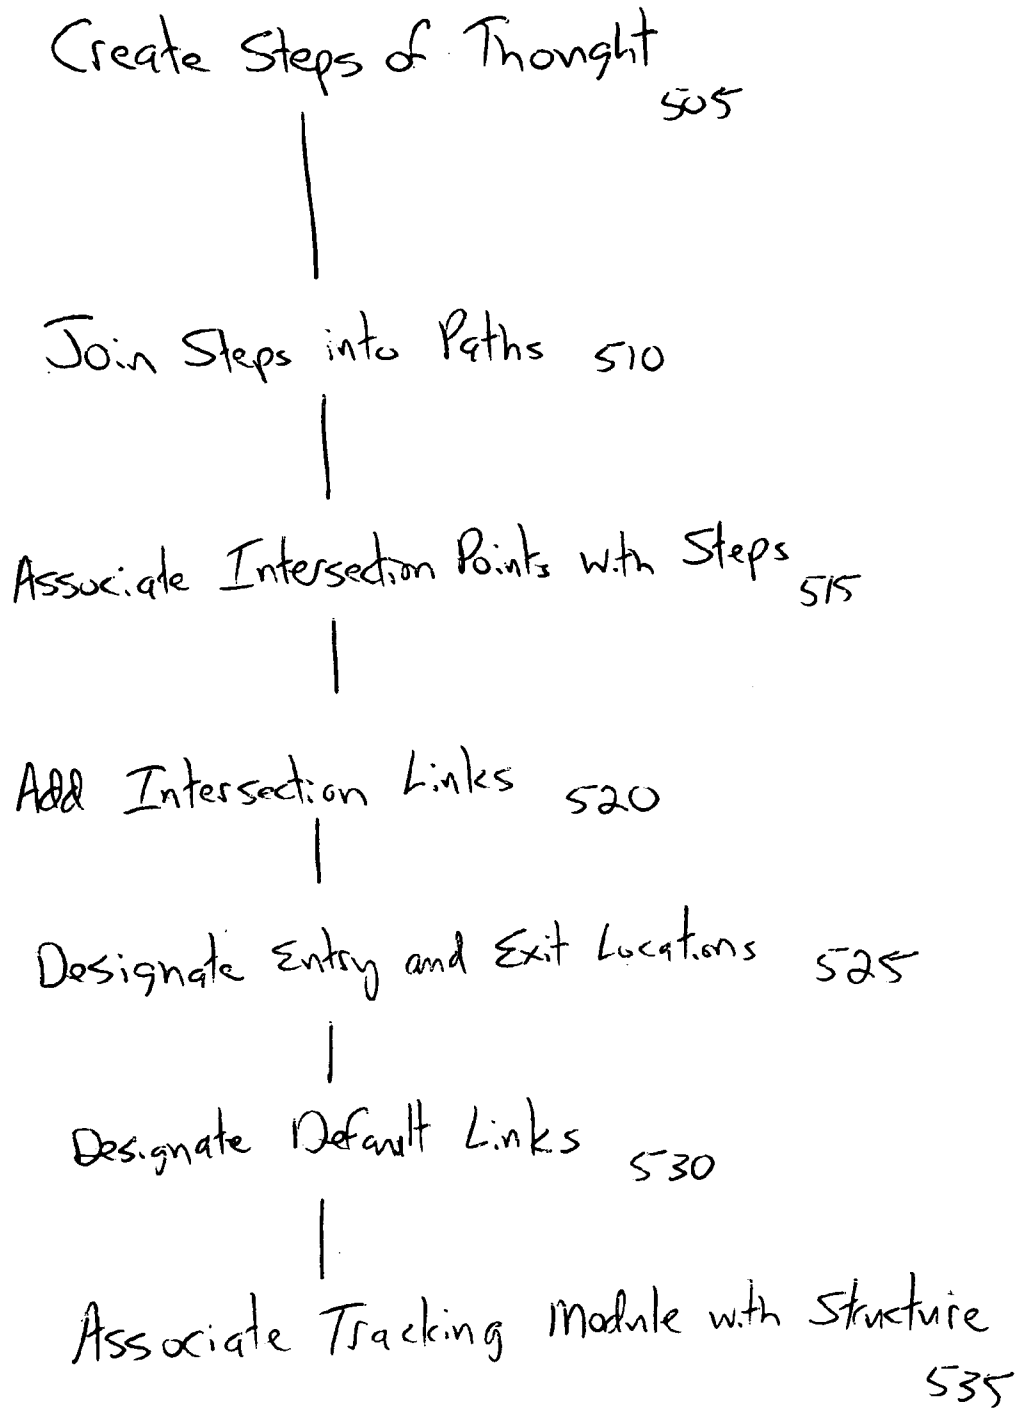 Create Steps of Thought
505
Join Steps into Paths 510
Associate Intersection Points with Steps
515
Add Intersection Links 520
Designate Entry and Exit Locations 525
Designate Default Links
530
Associate Tracking Module with Structure
535